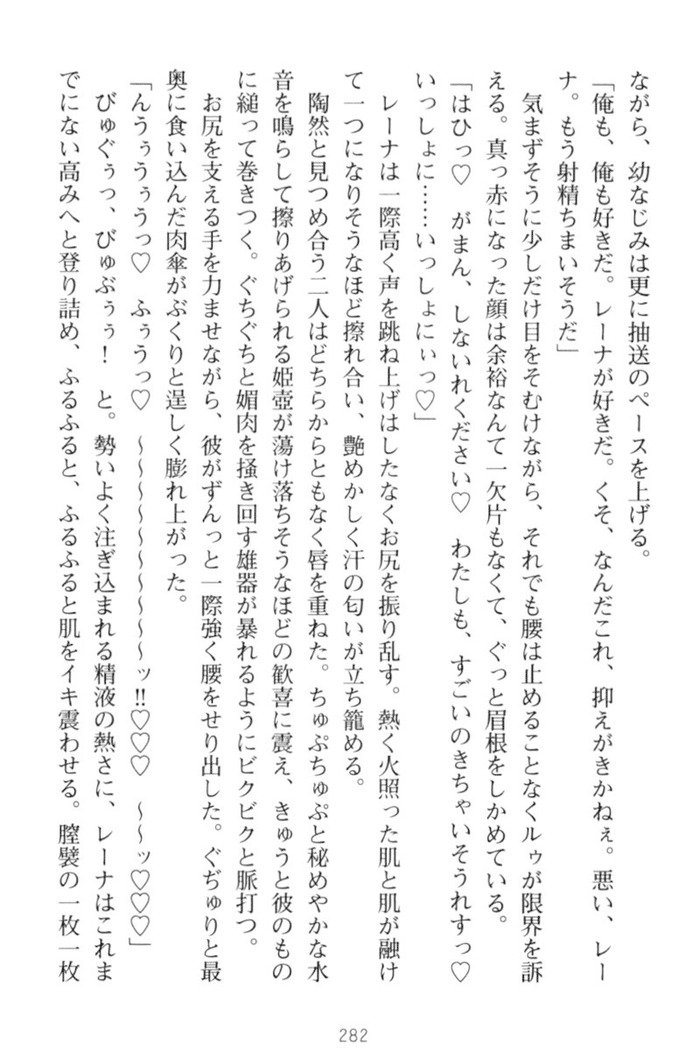 ながら、幼なじみは更に抽送のペースを上げる。
「俺も、俺も好きだ。レーナが好きだ。くそ、なんだこれ、抑えがきかねぇ。悪い、レー
ナ。もう射精ちまいそうだ」
気まずそうに少しだけ目をそむけながら、それでも腰は止めることなくルゥが限界を訴
える。真っ赤になった顔は余裕なんて一欠片もなくて、ぐっと眉根をしかめている。
「はひっ♡　がまん、しないれください♡　わたしも、すごいのきちゃいそうれすっ♡
いっしょに……いっしょにぃっ♡」
レーナは一際高く声を跳ね上げはしたなくお尻を振り乱す。熱く火照った肌と肌が融け
て一つになりそうなほど擦れ合い、艶めかしく汗の匂いが立ち籠める。
陶然と見つめ合う二人はどちらからともなく唇を重ねた。ちゅぷちゅぷと秘めやかな水
音を鳴らして擦りあげられる姫壺が蕩け落ちそうなほどの歓喜に震え、きゅうと彼のもの
に縋って巻きつく。ぐちぐちと媚肉を掻き回す雄器が暴れるようにビクビクと脈打つ。
お尻を支える手を力ませながら、彼がずんっと一際強く腰をせり出した。ぐぢゅりと最
奥に食い込んだ肉傘がぶくりと逞しく膨れ上がった。
「んうぅうぅうっ♡　ふぅうっ♡　～～～～～～～～ッ!!♡♡♡　～～ッ♡♡♡」
びゅぐぅっ、びゅぶぅぅ！　と。勢いよく注ぎ込まれる精液の熱さに、レーナはこれま
でにない高みへと登り詰め、ふるふると、ふるふると肌をイキ震わせる。膣襞の一枚一枚
282